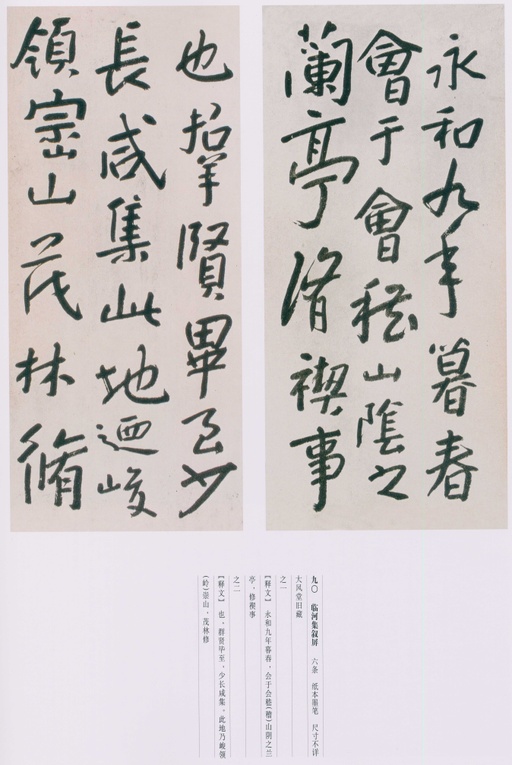 永和九年暮春
會于會稽山陰之
蘭亭脩禊事
也羣賢畢至少
長咸集此地迺峻
領崇山茂林脩
九〇 临河集叙屏 六条 纸本墨笔 尺寸不详
大风堂旧藏
之一
【释文】 永和九年暮春，会于会嵇(稽)山阴之兰
亭，修禊事
之二
【释文】 也，群贤毕至，少长咸集，此地乃峻领
(岭)崇山，茂林修